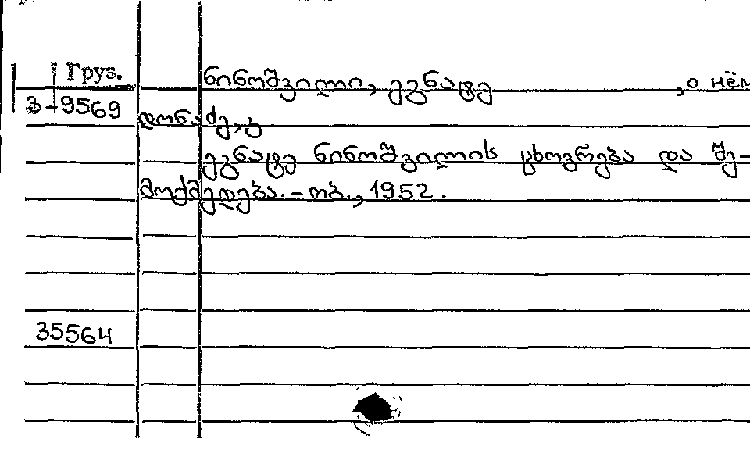 Груз. ნინოშვილი, ეგნატე , о нём
3-9569 დონაძე, ვ
ეგნატე ნინოშვილის ცხოვრება და შე-
მოქმედება. - თბ., 1952.
35564